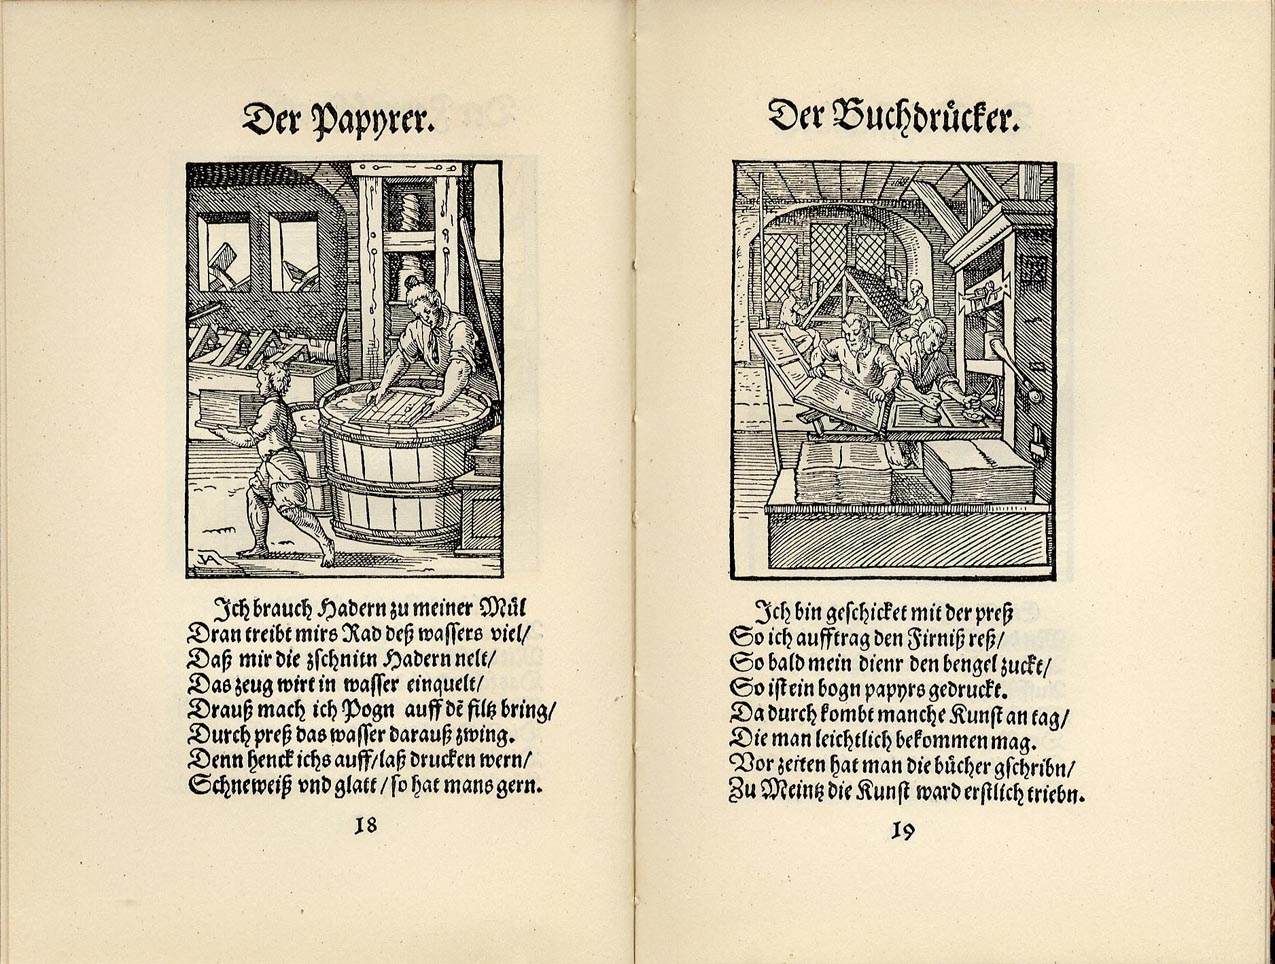 Der Papyrer.
Ich brauch Hadern zu meiner Muͤl
Dran treibt mirs Rad deß waſſers viel/
Daß mir die zſchnitn Hadern nelt/
Das zeug wirt in waſſer einquelt/
Drauß mach ich Pogn auff dē filtz bring/
Durch preß das waſſer darauß zwing.
Denn henck ichs auff/laß drucken wern/
Schneweiß vnd glatt/ſo hat mans gern.
18
Der Buchdruͤcker.
Ich bin geſchicket mit der preß
So ich aufftrag den Firniß reß/
So bald mein dienr den bengel zuckt/
So iſt ein bogn papyrs gedruckt.
Da durch kombt manche Kunſt an tag/
Die man leichtlich bekommen mag.
Vor zeiten hat man die buͤcher gſchribn/
Zu Meintz die Kunſt ward erſtlich triebn.
19